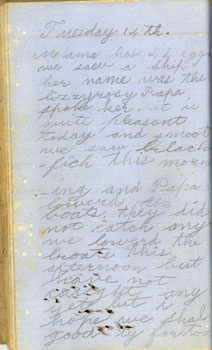 Tuesday 14th.
Mama has 22 eggs
we saw a ship
her name was the
lizzyrosy Papa
spoke her, it is
quite pleasant
today and smooth
we saw black
fich this morn
ing and Papa
lowerd the
boats. they did
not catch any
we lowerd the
boats this
afternoon but
have not
caught any
yet but i
hope we shal
good by for to